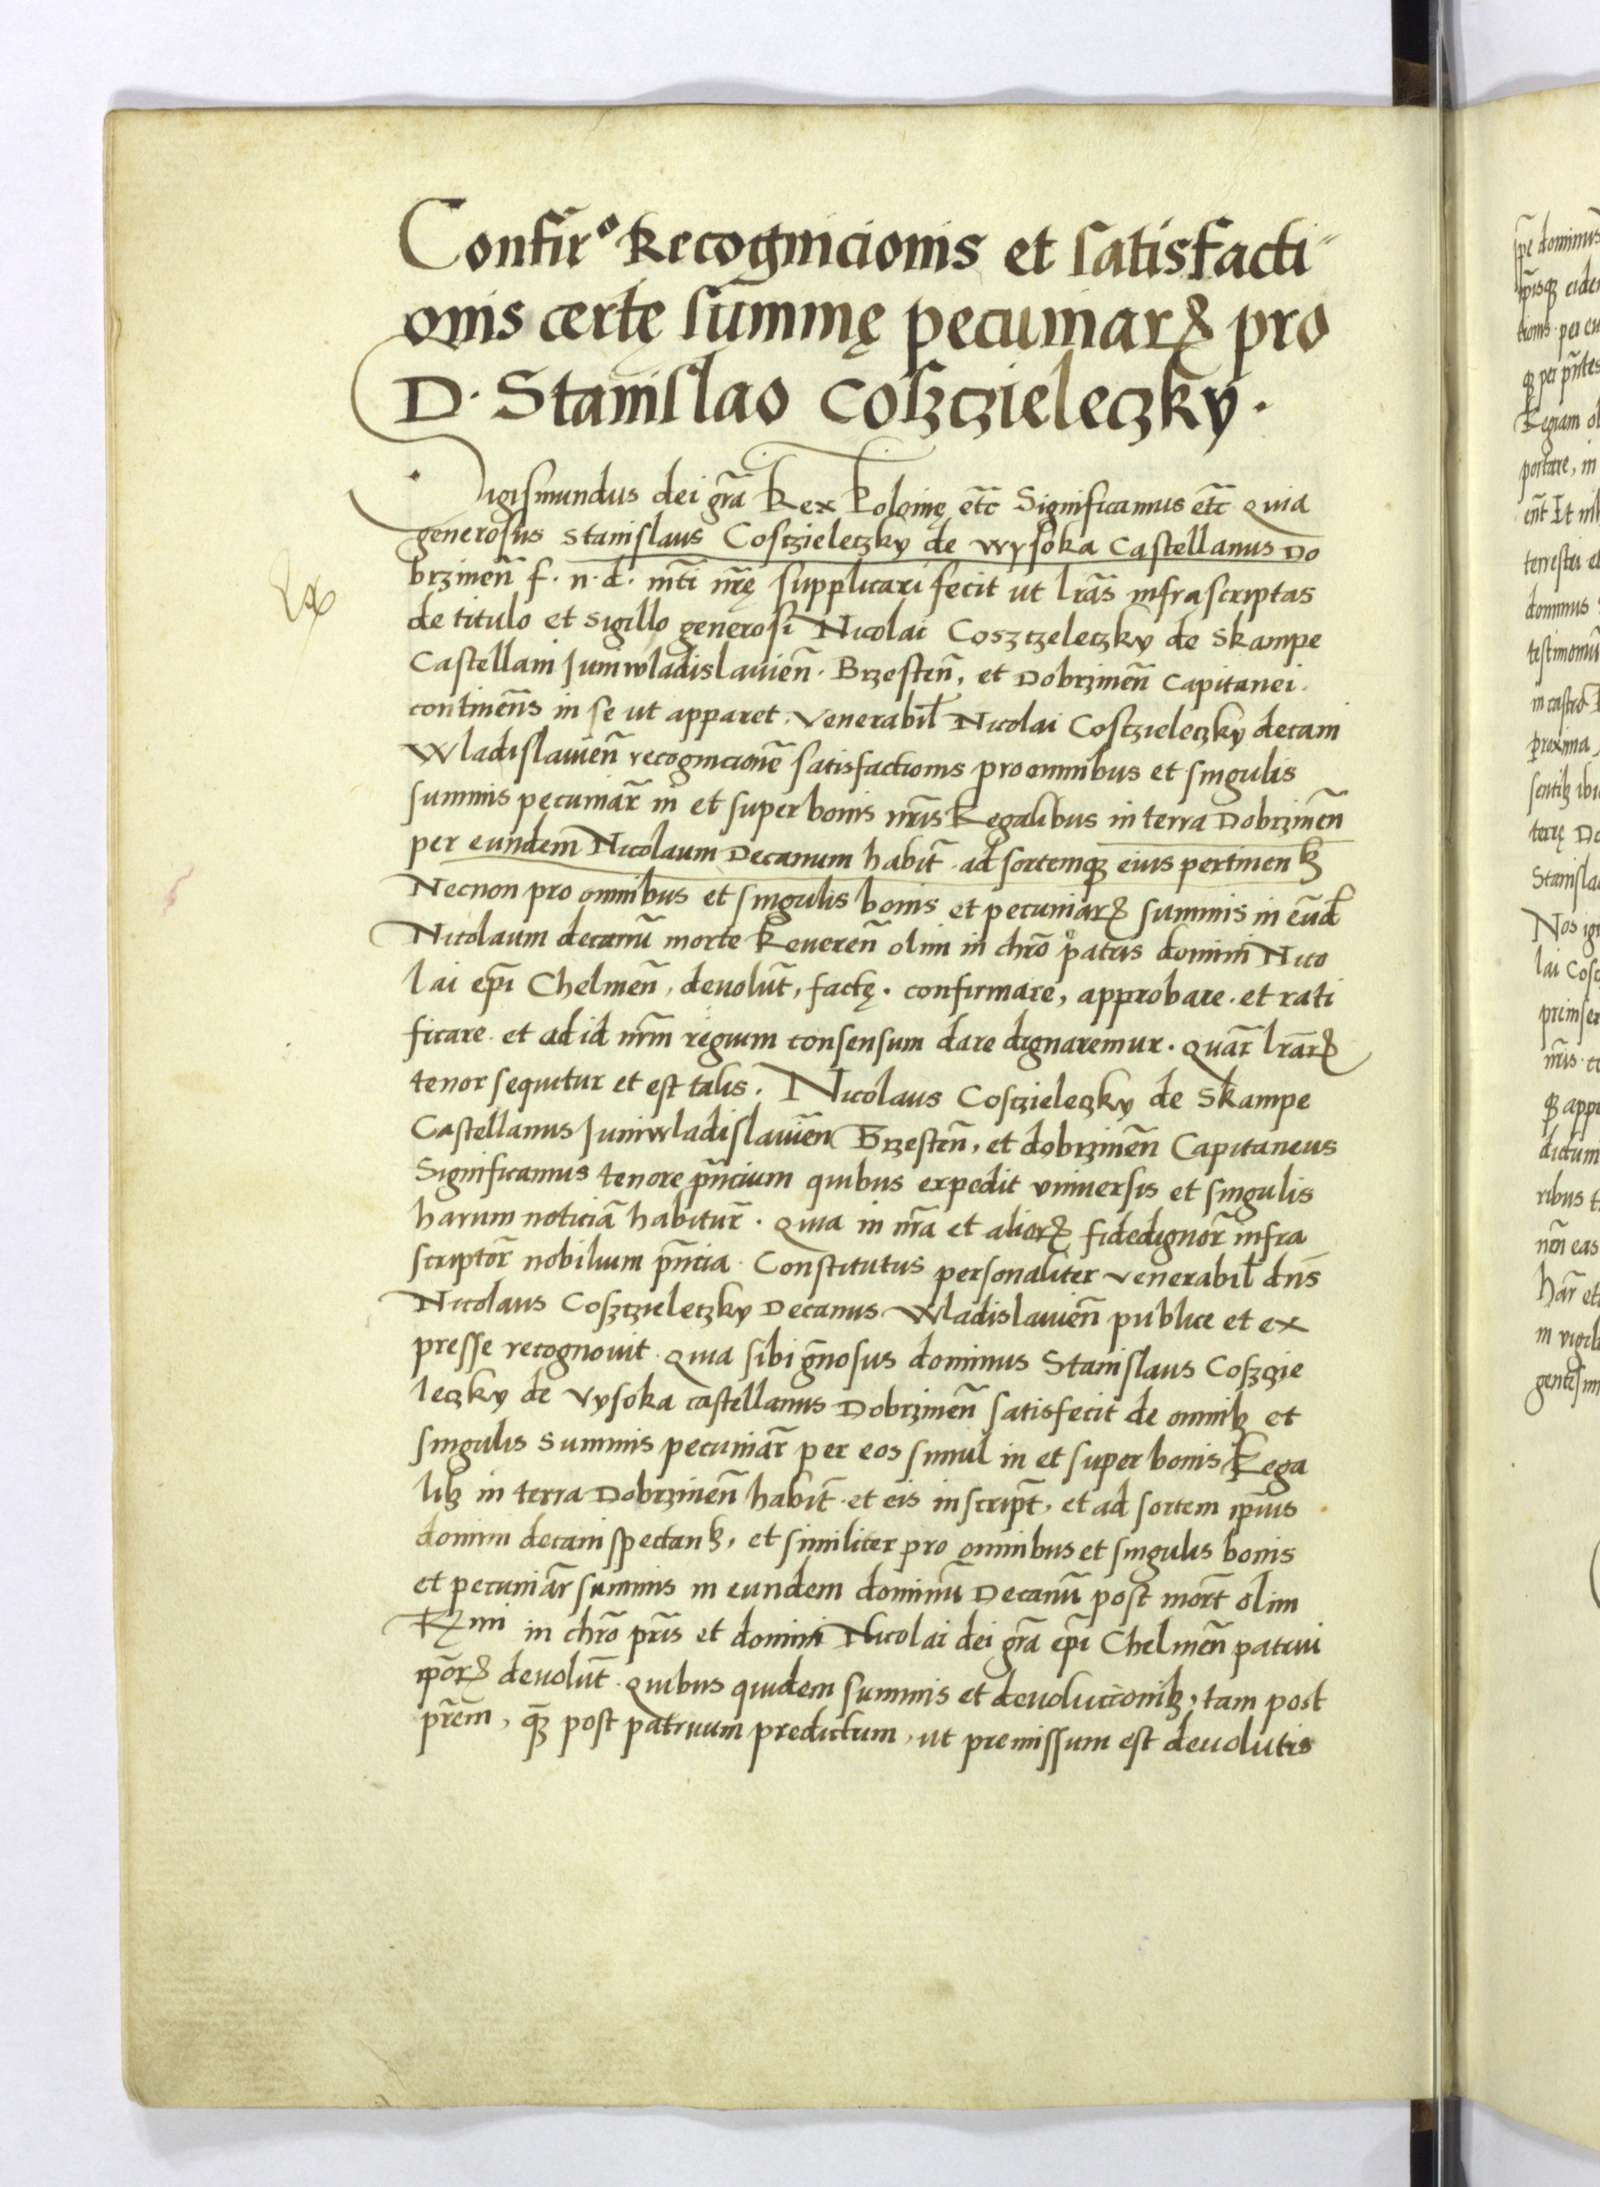 Confir° Recognicionis et satisfacti
onis certę summę pecuniarꝝ pro
D. Stanislao Cosczieleczky.
Sigismundus dei gr̃a Rex Polonię etc̃ Significamus etc̃ Quia
generosus Stanislaus Cosczieleczky de Wysoka Castellanus Do
brzineñ f. n. d. mt̃i nr̃ę supplicari fecit ut lr̃as infrascriptas
de titulo et sigillo generosi Nicolai Coszczeleczky de Skampe
Castellani Juniwladislauieñ. Brzesteñ, et Dobrzineñ Capitanei.
contineñs in se ut apparet. Venerabil̃ Nicolai Cosczieleczky decani
Wladislauieñ recognicionẽ satisfactionis pro omnibus et singulis
summis pecuniar̃ in et super bonis nr̃is Regalibus in terra Dobrzineñ
per eundem Nicolaum Decanum habit̃. ad sortemqꝫ eius pertinenꝭ
Necnon pro omnibus et singulis bonis et pecuniarꝝ summis in eũd̃
Nicolaum decanũ morte Reuereñ olim in chrõ patris domini Nico
lai ep̃i Chelmeñ, deuolut̃, factę. confirmare, approbare. et rati
ficare. et ad id nr̃m regium consensum dare dignaremur. Quar̃ lr̃arꝝ
tenor sequitur et est talis. Nicolaus Cosczieleczky de Skampe
Castellanus Juniwladislauieñ Brzesteñ, et dobrzineñ Capitaneus
Significamus tenore pñcium quibus expedit vniuersis et singulis
harum noticiã habitur̃. Quia in nr̃a et aliorꝝ fidedignor̃ infra
scriptor̃ nobilium pñcia. Constitutus personaliter venerabil̃ dñs
Nicolaus Coszczieleczky Decanus Wladislauieñ publice et ex
presse recognouit. Quia sibi gñosus dominus Stanislaus Coszczie
leczky de Vysoka castellanus Dobrzineñ satisfecit de omnibꝫ et
singulis summis pecuniar̃ per eos simul in et super bonis Rega
libꝫ in terra Dobrzineñ habit̃. et eis inscript̃, et ad sortem ip̃ius
domini decani spectanꝭ, et similiter pro omnibus et singulis bonis
et pecuniar̃ summis in eundem dominũ Decanũ post mort̃ olim
Rmi in chrõ pr̃is et domini Nicolai dei gr̃a ep̃i Chelmeñ patrui
ip̃orꝝ deuolut̃. Quibus quidem summis et deuolucionibꝫ, tam post
pr̃em, qꝫ̃ post patruum predictum, ut premissum est deuolutis